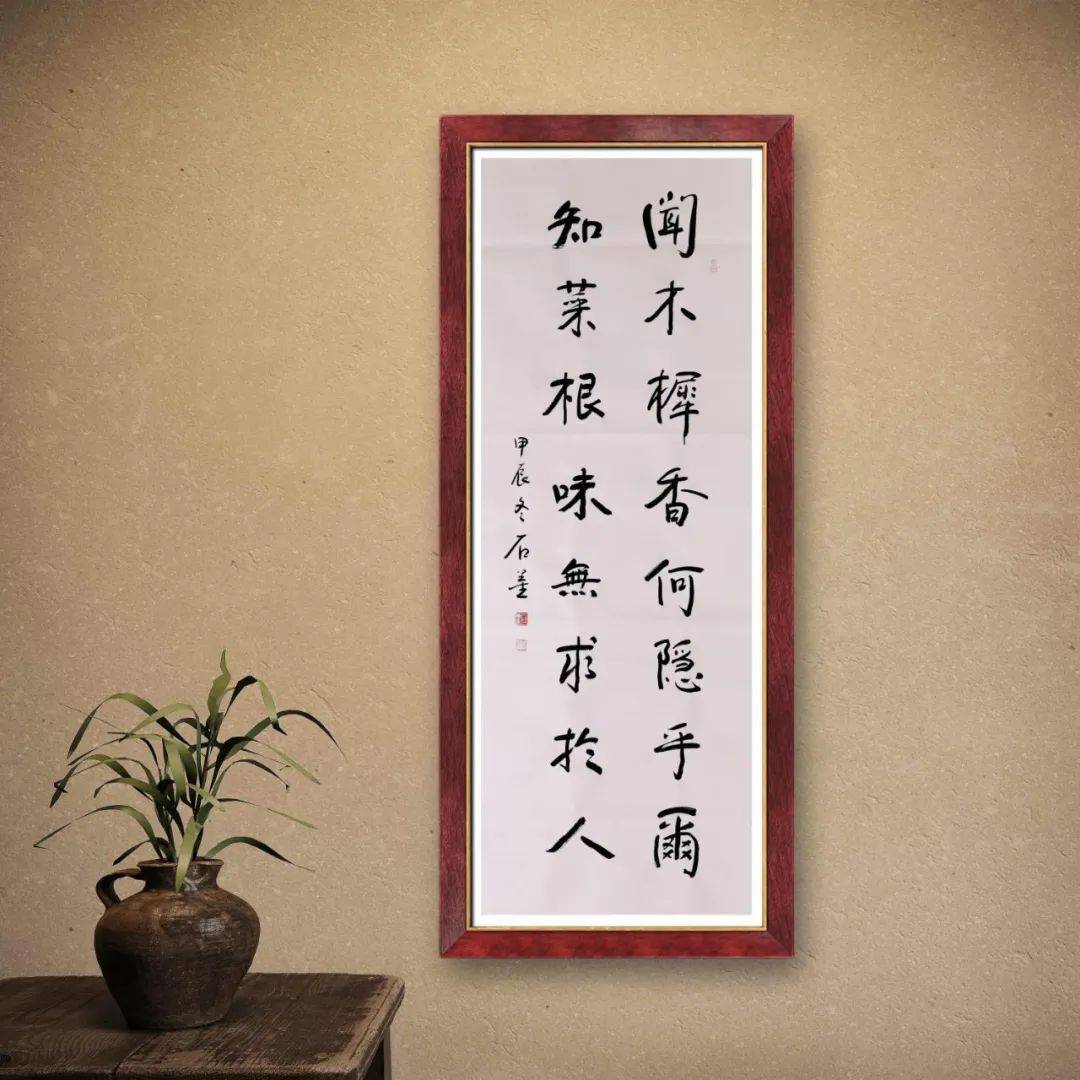 聞木樨香何隱乎爾
知菜根味無求於人
甲辰冬石堇